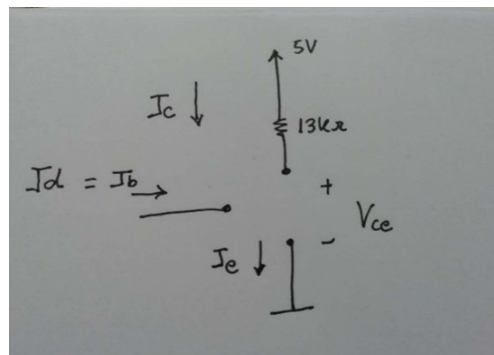 5V
Ic ↓
13kΩ
Id = Ib →
+
Vce
-
Ie ↓